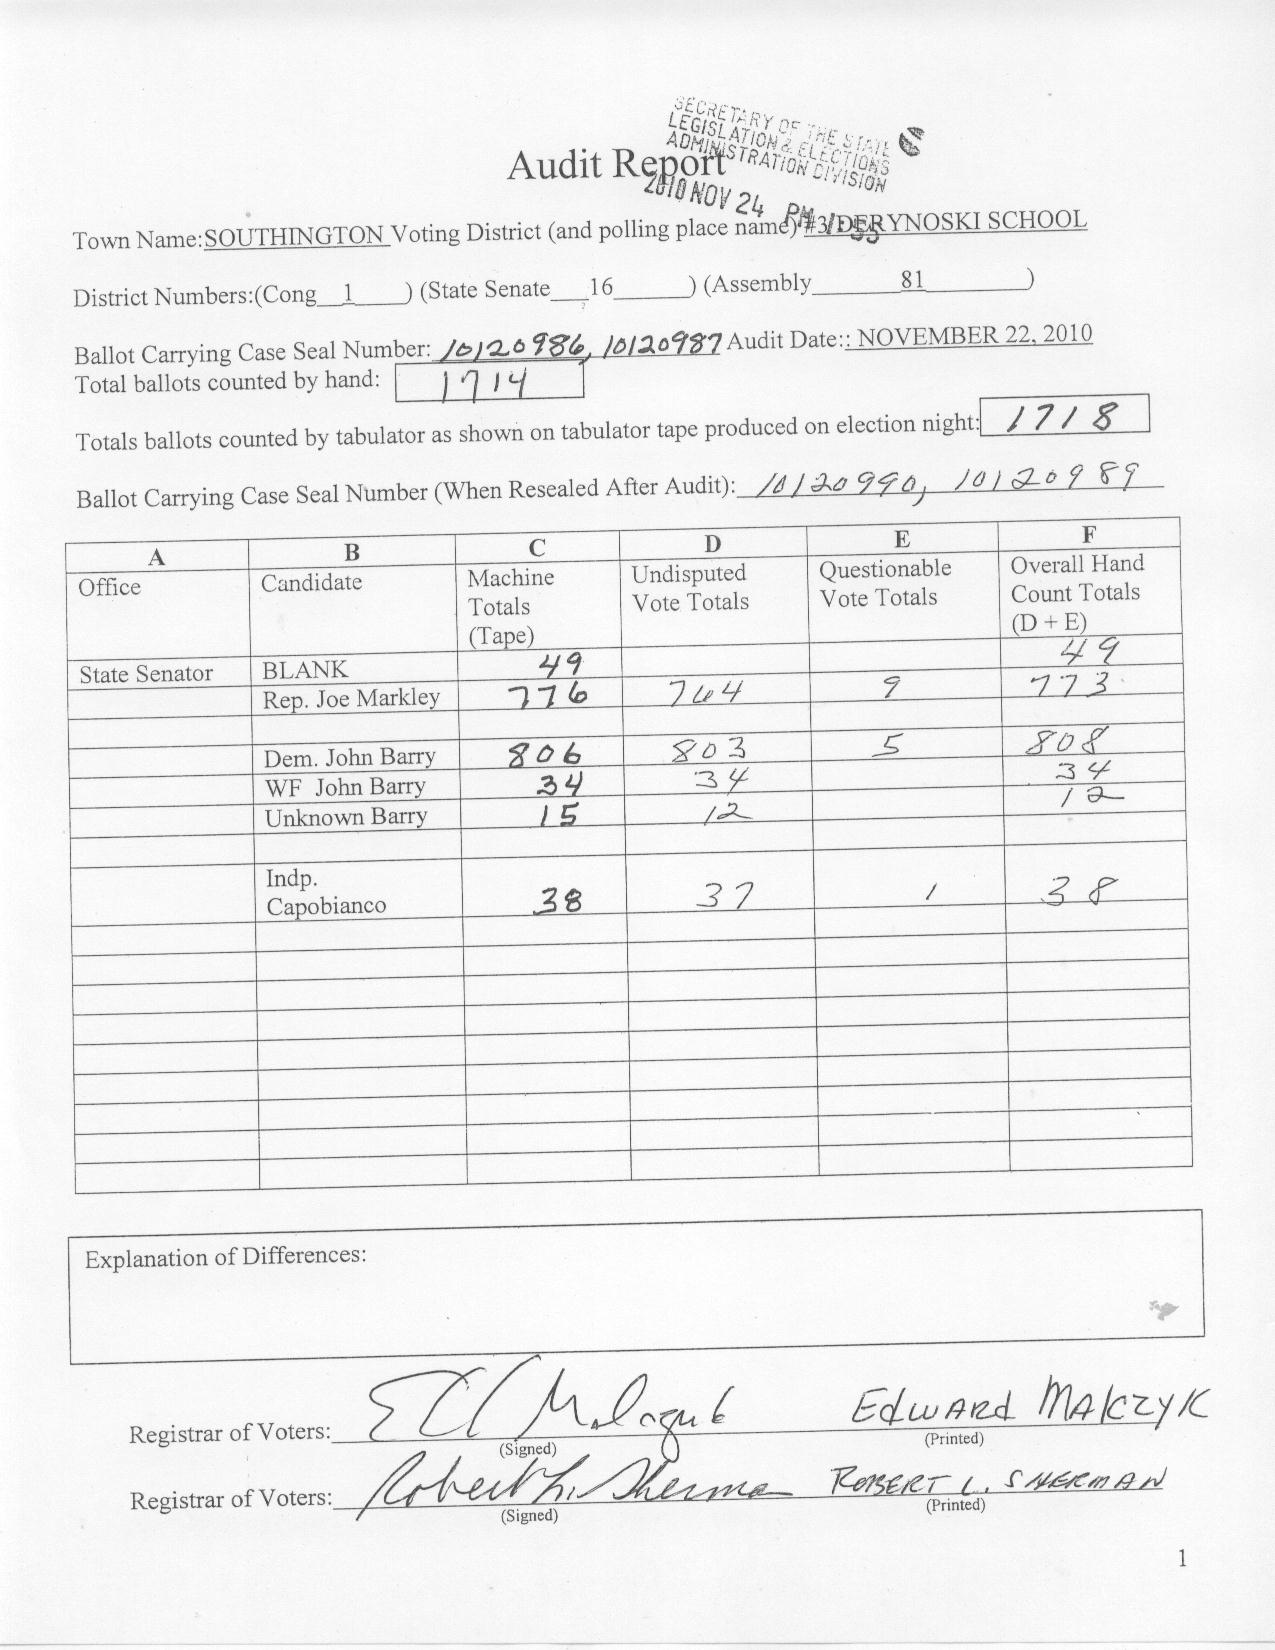 SECRETARY OF THE STATE
LEGISLATION & ELECTIONS
ADMINISTRATION DIVISION
Audit Report
2010 NOV 24 PM
Town Name:SOUTHINGTON Voting District (and polling place name) #3/DERYNOSKI SCHOOL
District Numbers:(Cong 1 ) (State Senate 16 ) (Assembly 81 )
Ballot Carrying Case Seal Number: 10120986, 10120987 Audit Date:: NOVEMBER 22, 2010
Total ballots counted by hand: 1714
Totals ballots counted by tabulator as shown on tabulator tape produced on election night: 1718
Ballot Carrying Case Seal Number (When Resealed After Audit): 10120990, 10120989
A B C D E F
Office Candidate Machine Totals (Tape) Undisputed Vote Totals Questionable Vote Totals Overall Hand Count Totals (D + E)
State Senator BLANK 49 49
Rep. Joe Markley 776 764 9 773
Dem. John Barry 806 803 5 808
WF John Barry 34 34 34
Unknown Barry 15 12 12
Indp.
Capobianco 38 37 1 38
Explanation of Differences:
Registrar of Voters: Edward Malczyk
(Signed) (Printed)
Registrar of Voters: Robert L. Sherman ROBERT L. SHERMAN
(Signed) (Printed)
1